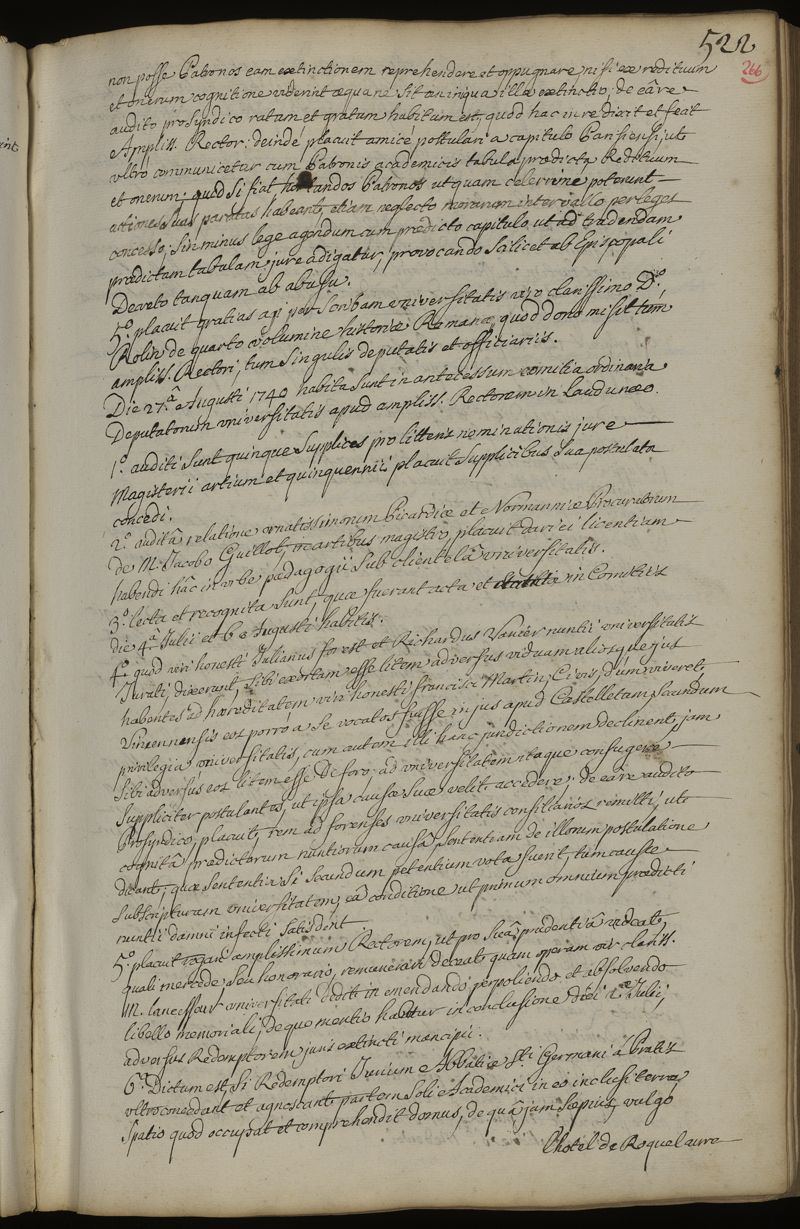 522
266
non posse Patronos eam extinctionem reprehendere et oppugnare, nisi ex redituum
et onerum cognitione viderint æqua ne sit an iniqua illa extinctio; de eâ re
audito prosyndico ratam et gratam habitam est, quod hac in re dixit et fecit
Ampliss. Rector; deindè placuit amicè postulari a capitulo Parisiensi, ut
ultrò communicetur cum Patronis academicis tabula prædicta Redituum
et onerum; quod si fiat hortandos Patronos ut quam celerrimè poterunt
actiones suas paratas habeant, etiam neglecto morarum intervallo per leges
concesso; sin minus lege agendum cum prædicto capitulo, ut ad tradendam
prædictam tabulam jure adigatur, provocando scilicet ab Episcopali
Decreto tanquam ab abusu.
5º. placuit gratias agi per scribam universitatis viro clarissimo D.º
Rolin de quarto volumine historiæ Romanæ, quod dono misit tum
ampliss. Rectori, tum singulis deputatis et officiariis.
Die 27.ª Augusti 1740 habita sunt in antecessum comitia ordinaria
Deputatorum universitatis apud ampliss. Rectorem in Laudunæo.
1.º auditi sunt quinque supplices pro litteris nominationis jure
Magisterii artium et quinquennii; placuit supplicibus sua postulata
concedi.
2.º auditâ relatione ornatissimorum Picardiæ et Normanniæ Procuratorum
de M. Jacobo Guillot, in artibus magistro, placuit dari ei licentiam
habendi hâc in urbe pædagogii sub clientelâ universitatis.
3.º lecta et recognita sunt, quæ fuerant acta et in Comitiis
die 4.ª Julii et 6 Augusti habitis.
4.º quod viri honesti Julianus forest et Richardus Vauvier nuntii universitatis
Jurati, dixerunt, sibi exortam esse litem adversus viduam aliosque jus
habentes ad hæreditatem viri honesti francisci Martin, Civis, dum viveret,
Vincennensis eos porrò a se vocatos fuisse in jus apud Castelletum, secundum
privilegia universitatis, cum autem illi hanc jurdictionem declinent, jam
sibi adversus eos litem esse De foro; ad universitatem itaque confugere
suppliciter postulantes, ut ipsa causæ suæ velit accedere; de eâ re audito
Prosyndico, placuit, rem ad forenses universitatis consiliarios remitti, ut
cognitâ prædictorum nuntiorum causâ, sententiam de illorum postulatione
dicant; quæ sententia si secundum petentium vota fuerit, tum causæ
subscripturam universitatem, eâ conditione ut primum omnium prædicti
nuntii damni infecti satisdent
5.º placuit rogari amplissimum Rectorem, ut pro suâ prudentiâ videat,
quali mercede, seu honorario, remunerari deceat quam operam vir clariss.
M. universitati dedit in emendando perpoliendo et absolvendo
libello memoriali, de quo mentio habetur in conclusione diei 2.æ Julii,
adversus Redemptorem juris extincti mancipii.
6.º Dictum est, si Redemptori Jurium Abbatiæ Sti. Germani à Pratis
ultro concedant et agnoscant partem soli Academici in eo inclusi terræ
spatio quod occupat et comprehendit domus, de quâ jam sæpius, vulgo
l'hotel de Roquelaure